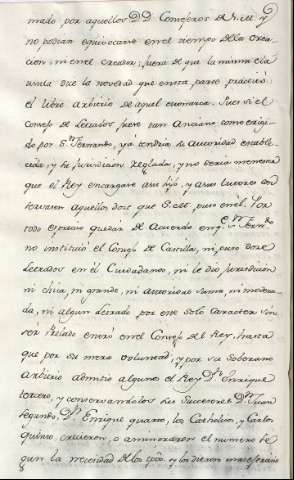 mado por aquellos D.D. Consejeros de S. M. y
no podian equivocarse en el tiempo de la crea-
cion ni en el creador; fuera de que la misma cla
usula dice la novedad que en esta parte practicò
el libre arbitrio de aquel Monarca. Pues si el
Consejo de Letrados fuese tan Anciano, como erigi-
do por Sn. Fernando, yà tendria su autoridad estable-
cida, y su jurisdicion reglada, y no seria menester
que el Rey encargase a su hijo, y a sus tutores con
servasen aquellos doce que S. M. puso en el. Por
todo es preciso quedar de Acuerdo en qe. Sn. Ferndo.
no instituiò el Consejo de Castilla, ni puso doce
Letrados en èl Cuidadanos, ni le diò jurisdicion
ni chica, ni grande, ni autoridad suma, ni modera-
da, ni algun Letrado por este solo Caracter sin
ser Prelado entrò en el Consejo del Rey, hasta
que por su mera voluntad, y por su soberano
Arbitrio admitiò alguno el Rey Dn. Enrique
tercero, y conservandolos sus sucesores Dn. Juan
segundo, Dn. Enrique quarto, los Catholicos, y Carlos
quinto, crecieron, o aminoraron el numero se
gun la necesidad de los